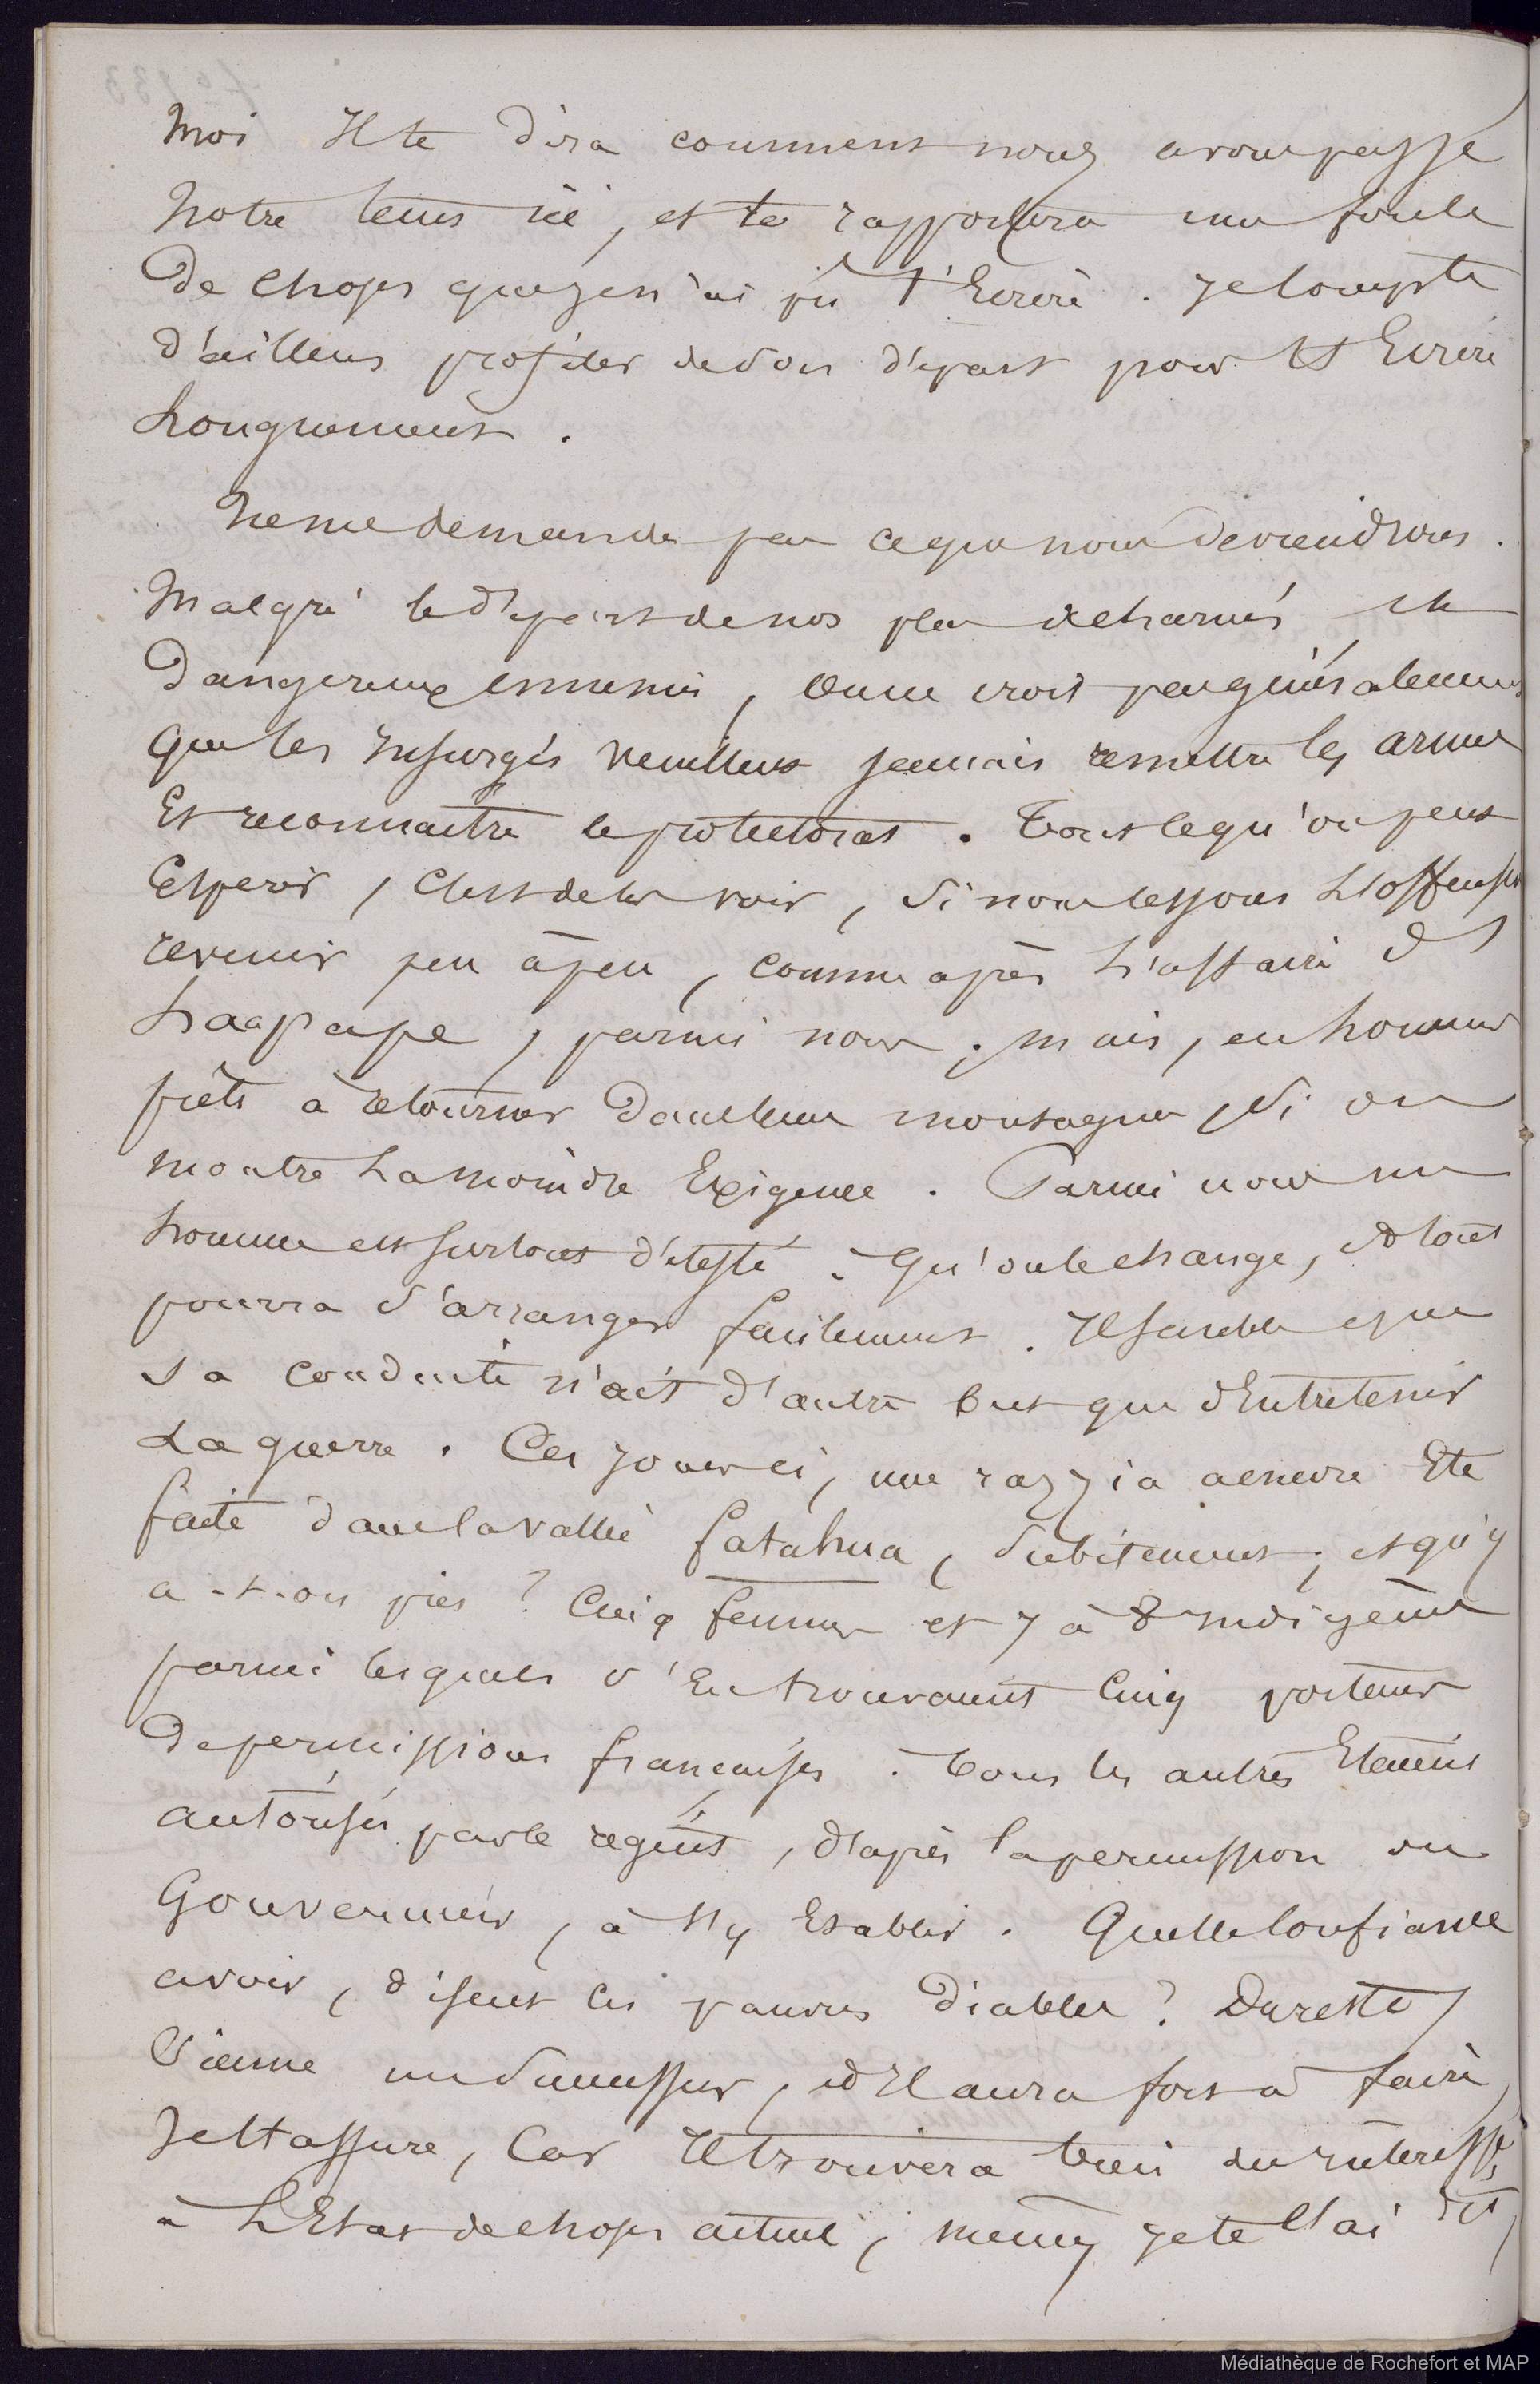 moi Il te dira comment nous avons passé
notre tems ici, et te rapportera une foule
de choses que je n'ai pû t'Ecrire. Je compte
d'ailleurs profiter de son départ pour t'Ecrire
Longuement.
Ne me demande pas ce que nous deviendrons.
Malgré le départ de nos plus acharnés et
dangereux ennemis, on ne croit pas généralement
que les Insurgés veuillent jamais remettre les armes
Et reconnaître le protectorat. Tout ce qu'on peut
Espérer, C'est de les voir, si nous cessons L'offensive
revenir peu à peu, comme après L'affaire d'
haapape, parmi nous; mais, en hommes
prêts à retourner dans leurs montagnes, si on
montre La moindre Exigence. Parmi nous un
homme est surtout détesté. Qu'on le change, et tout
pourra s'arranger facilement. Il semble que
sa conduite n'ait d'autre but que d'Entretenir
La guerre. Ces jours ci, une razzia a encore Eté
faite dans la vallée fatahua, subitement; et qu'y
a-t-on pris? Cinq femmes et 7 à 8 Indigènes
parmi lesquels s'En trouvaient Cinq porteurs
de permissions françaises. Tous les autres Etaient
autorisés par le régent, d'après la permission du
Gouverneur, à s'y Etablir. Quelle Confiance
avoir, disent les pauvres diables? Du reste,
Vienne un Successeur, et Il aura fort à faire,
Je t'assure, Car Il trouvera bien des intéressés,
à L'Etat de choses actuel, même, je te l'ai dit,
Médiathèque de Rochefort et MAP